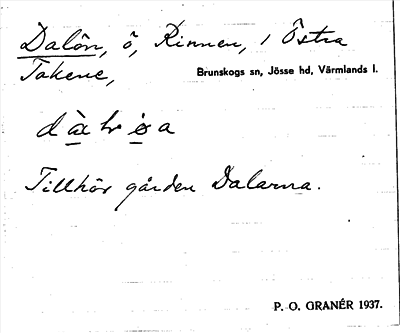 Dalön, ö, Rinnen, i Östra
Takene,
Brunskogs sn, Jösse hd, Värmlands l.
Tillhör gården Dalarna.
P. O. GRANÉR 1937.